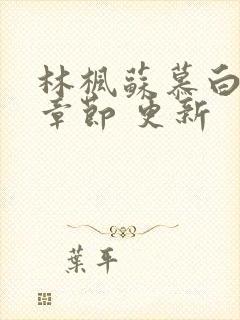 林楓蘇慕白
章節 更新
葉平